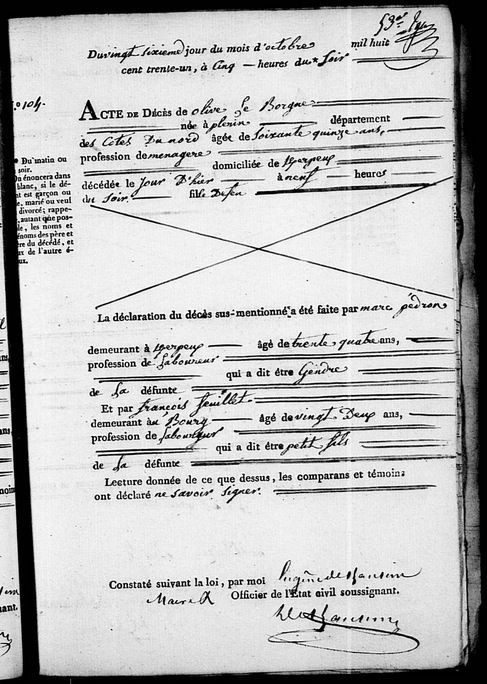 53
Du vingt sixieme jour du mois d'octobre mil huit
cent trente-un, à Cinq — heures du * Soir
N.º 104.
ACTE DE Décès de olive Le Borgne
née à plenin département
des Côtes Du nord âgée de Soixante quinze ans,
profession de menagere
domiciliée de
décédée le Jour D'hier à neuf — heures
du Soir — fils De feu
* Du matin ou
soir.
On énoncera dans
blanc, si le dé-
nt est garçon ou
, marié ou veuf
divorcé; rappe-
, autant que pos-
le, les noms et
énoms des père et
ère du décédé, et
ux de l'autre é-
ux.
La déclaration du décès sus-mentionné a été faite par marc pédron
demeurant à âgé de trente quatre ans,
profession de Laboureur
qui a dit être Gendre
de La défunte
Et par françois feuillet
demeurant au Bourg âgé de vingt Deux ans,
profession de Laboureur
qui a dit être petit fils
de La défunte
Lecture donnée de ce que dessus, les comparans et témoins
ont déclaré ne Savoir Signer.
Constaté suivant la loi, par moi Eugène de
Maire & Officier de l'État civil soussignant.